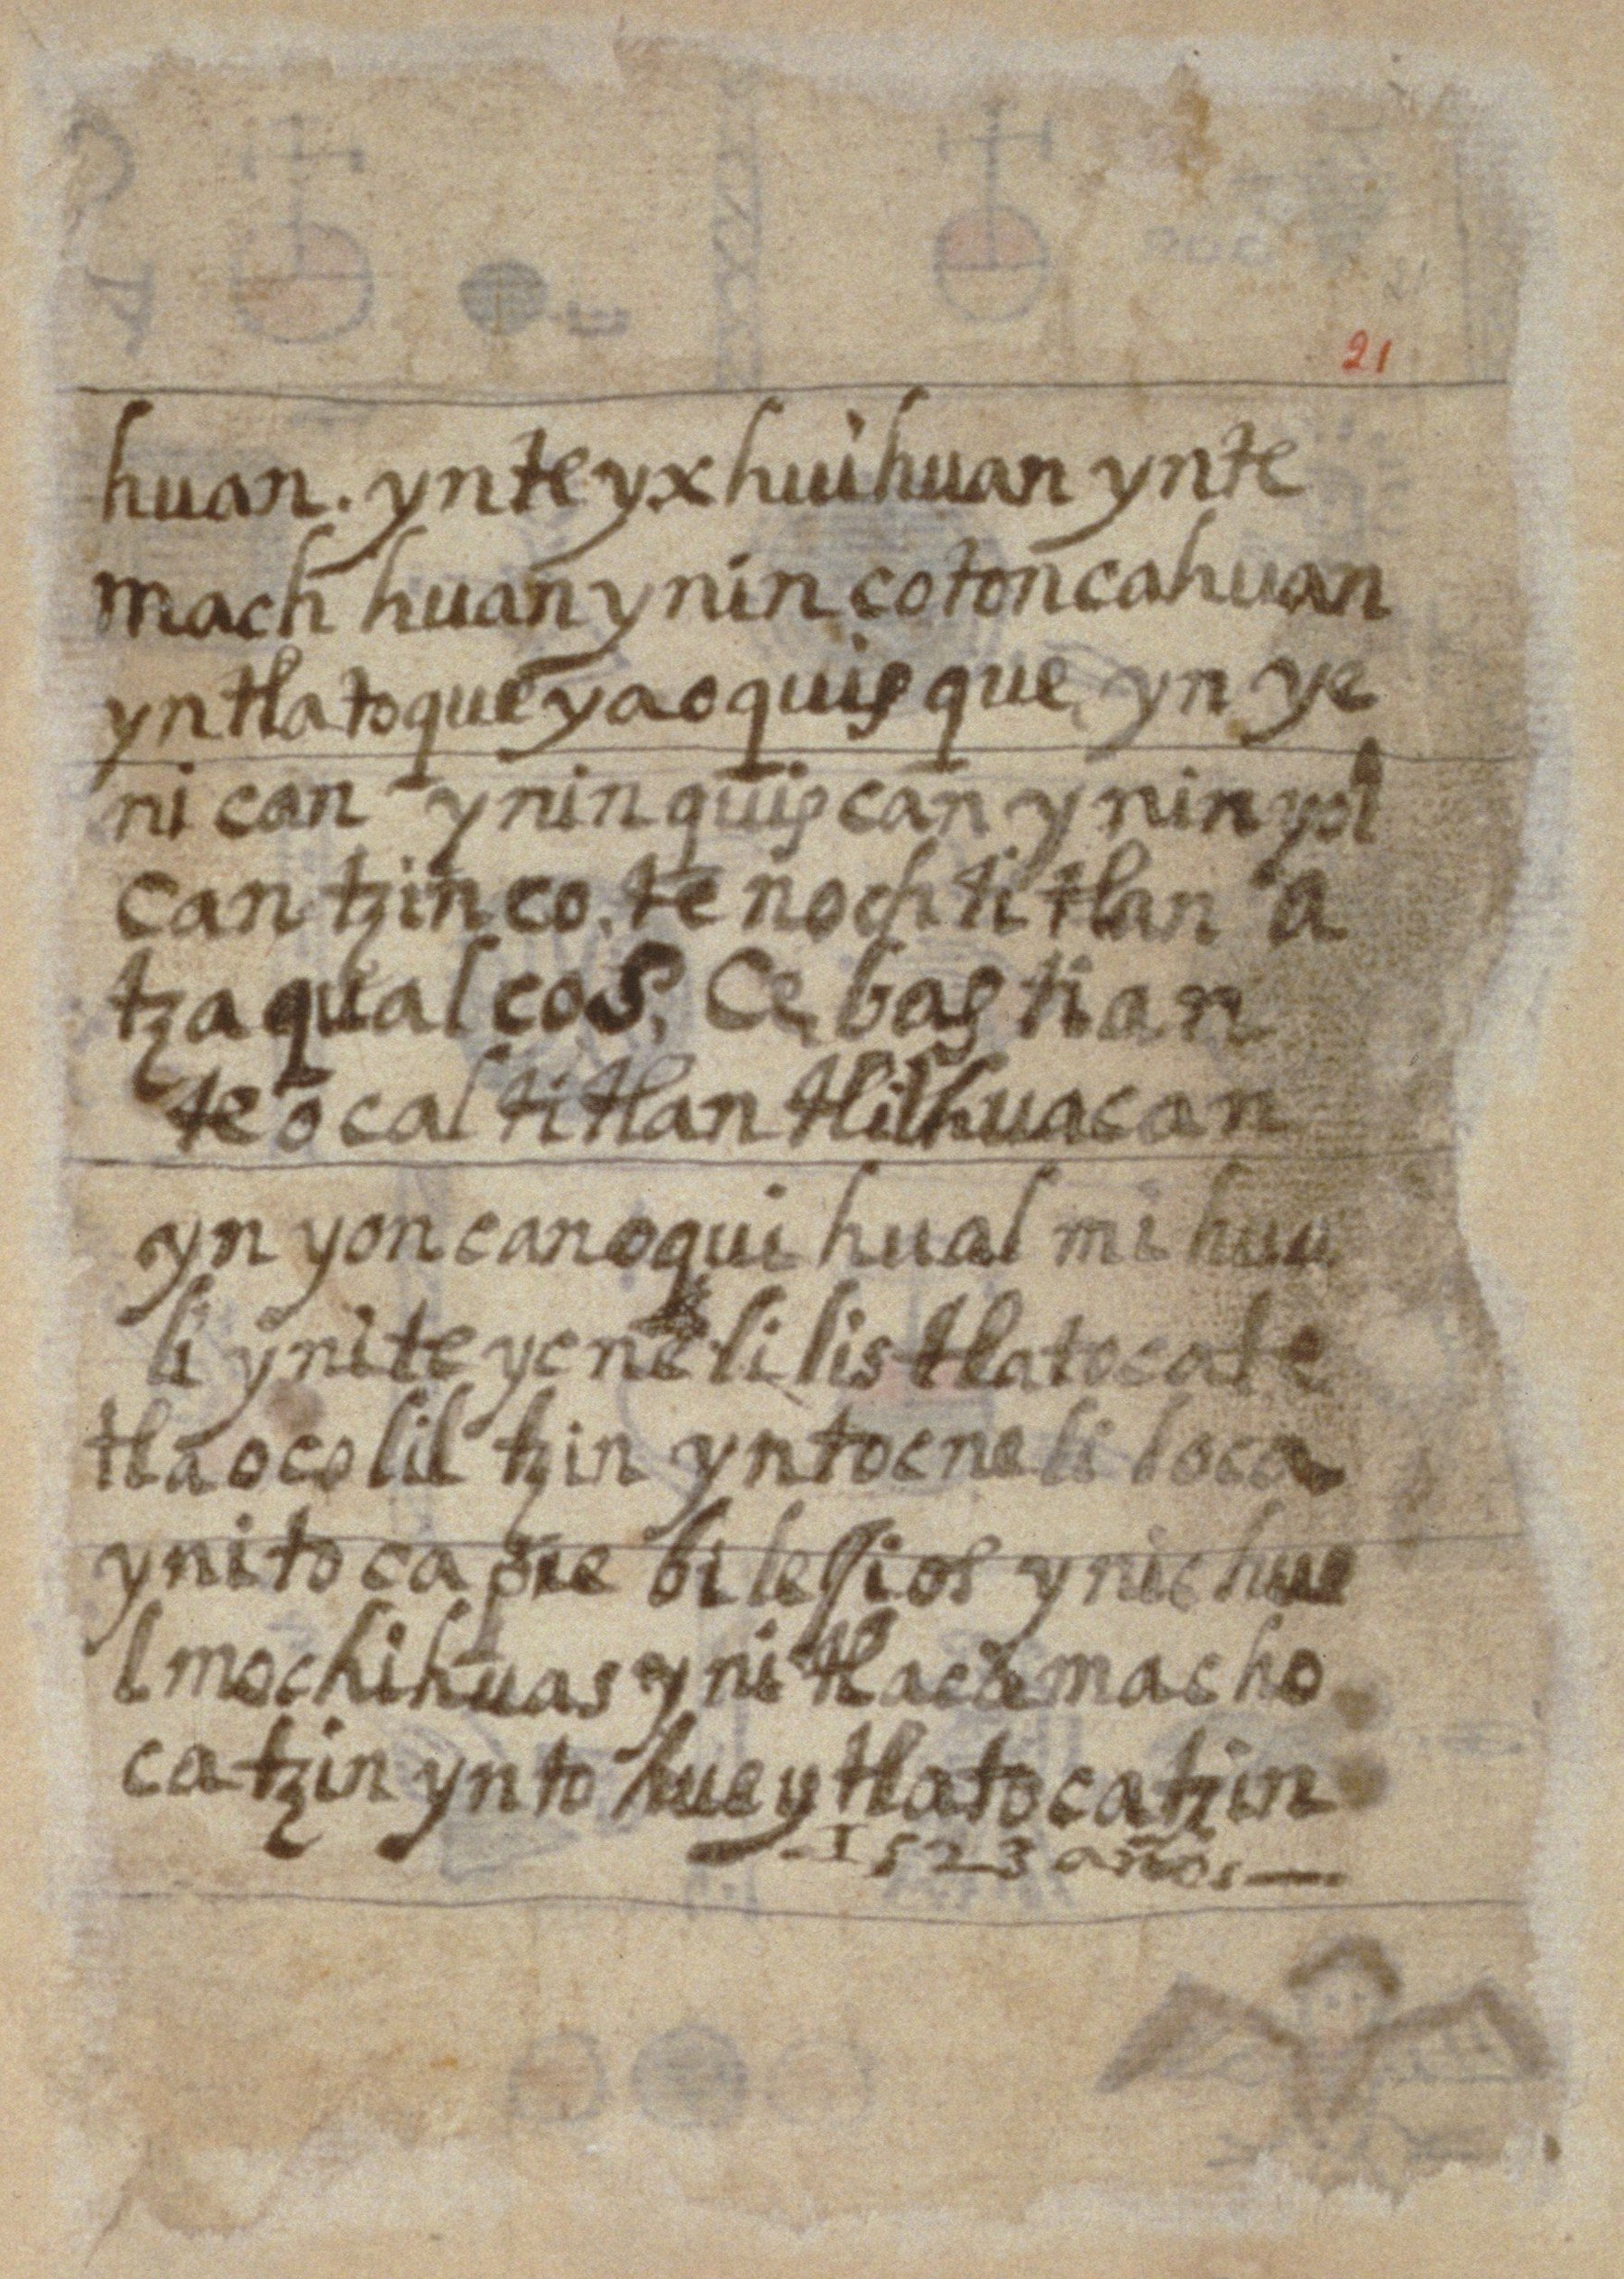 21
huan. ynteyxhuihuan ynte
mach huan ynin cotoncahuan
yntlatoque yaoquisque yn ye
ni can ynin quiscan ynin yol
can tzin co. te noch ti tlan a
tzaqualcoS, Ce bas tian
te o cal ti tlan tlilhuacan
yn yon canoqui hual mi huu
li ynite ycneli lis tlatocate
tlaoco lil tzin yntocne li loca
ynitoca pie bi lesios ynic hue
l mochihuas yni tlaca macho
ca tzin ynto hueytlatocatzin
1523 años